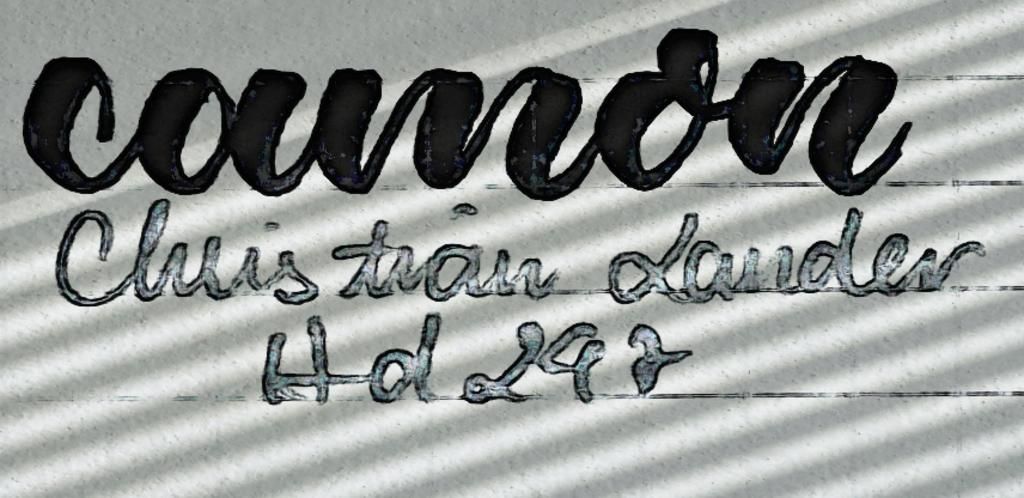 camon
Christian Lander
Hd